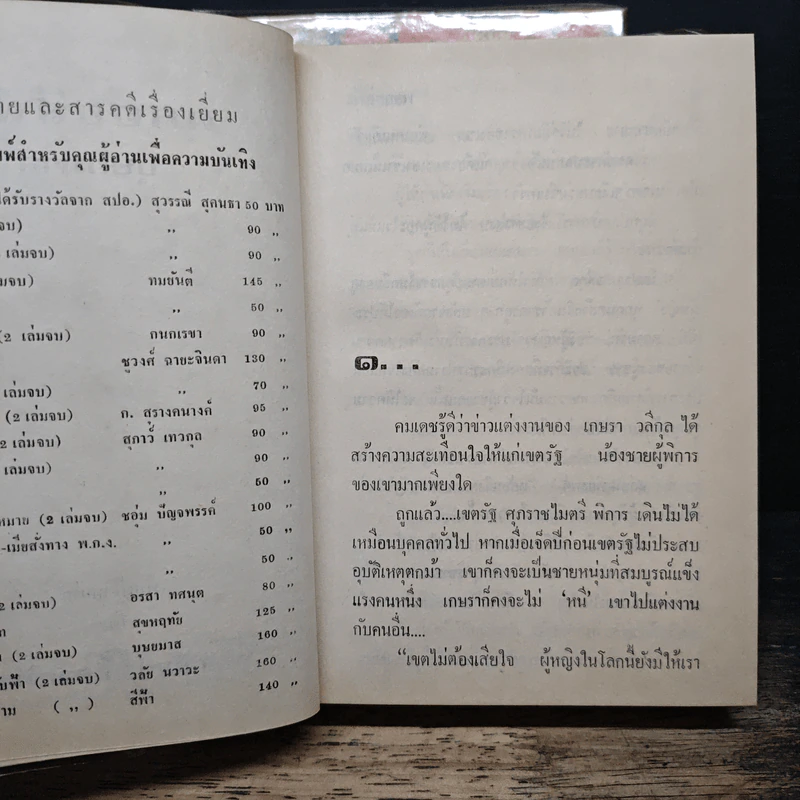 ายและสารคดีเรื่องเยี่ยม
พ์สำหรับคุณผู้อ่านเพื่อความบันเทิง
ได้รับรางวัลจาก สปอ.) สุวรรณี สุคนธา 50 บาท
จบ) ,, 90 ,,
เล่มจบ) ,, 90 ,,
่มจบ) ทมยันตี 145 ,,
,, 50 ,,
(2 เล่มจบ) กนกเรขา 90 ,,
ชูวงศ์ ฉายะจินดา 130 ,,
เล่มจบ) ,, 70 ,,
(2 เล่มจบ) ก. สุรางคนางค์ 95 ,,
2 เล่มจบ) สุภาว์ เทวกุล 90 ,,
เล่มจบ) ,, 90 ,,
,, 50 ,,
หมาย (2 เล่มจบ) ชอุ่ม ปัญจพรรค์ 100 ,,
-เมียสั่งทาง พ.ก.ง. ,, 50 ,,
,, 50 ,,
2 เล่มจบ) อรสา ทศนุต 80 ,,
ก สุขหฤทัย 125 ,,
า (2 เล่มจบ) บุษยมาส 160 ,,
ับฟ้า (2 เล่มจบ) วลัย นวาระ 160 ,,
าม ( ,, ) สีฟ้า 140 ,,
๑...
คมเดชรู้ดีว่าข่าวแต่งงานของ เกษรา วลีกุล ได้
สร้างความสะเทือนใจให้แก่เขตรัฐ น้องชายผู้พิการ
ของเขามากเพียงใด
ถูกแล้ว....เขตรัฐ ศุภราชไมตรี พิการ เดินไม่ได้
เหมือนบุคคลทั่วไป หากเมื่อเจ็ดปีก่อนเขตรัฐไม่ประสบ
อุบัติเหตุตกม้า เขาก็คงจะเป็นชายหนุ่มที่สมบูรณ์แข็ง
แรงคนหนึ่ง เกษราก็คงจะไม่ ‘หนี’ เขาไปแต่งงาน
กับคนอื่น....
“เขตไม่ต้องเสียใจ ผู้หญิงในโลกนี้ยังมีให้เรา